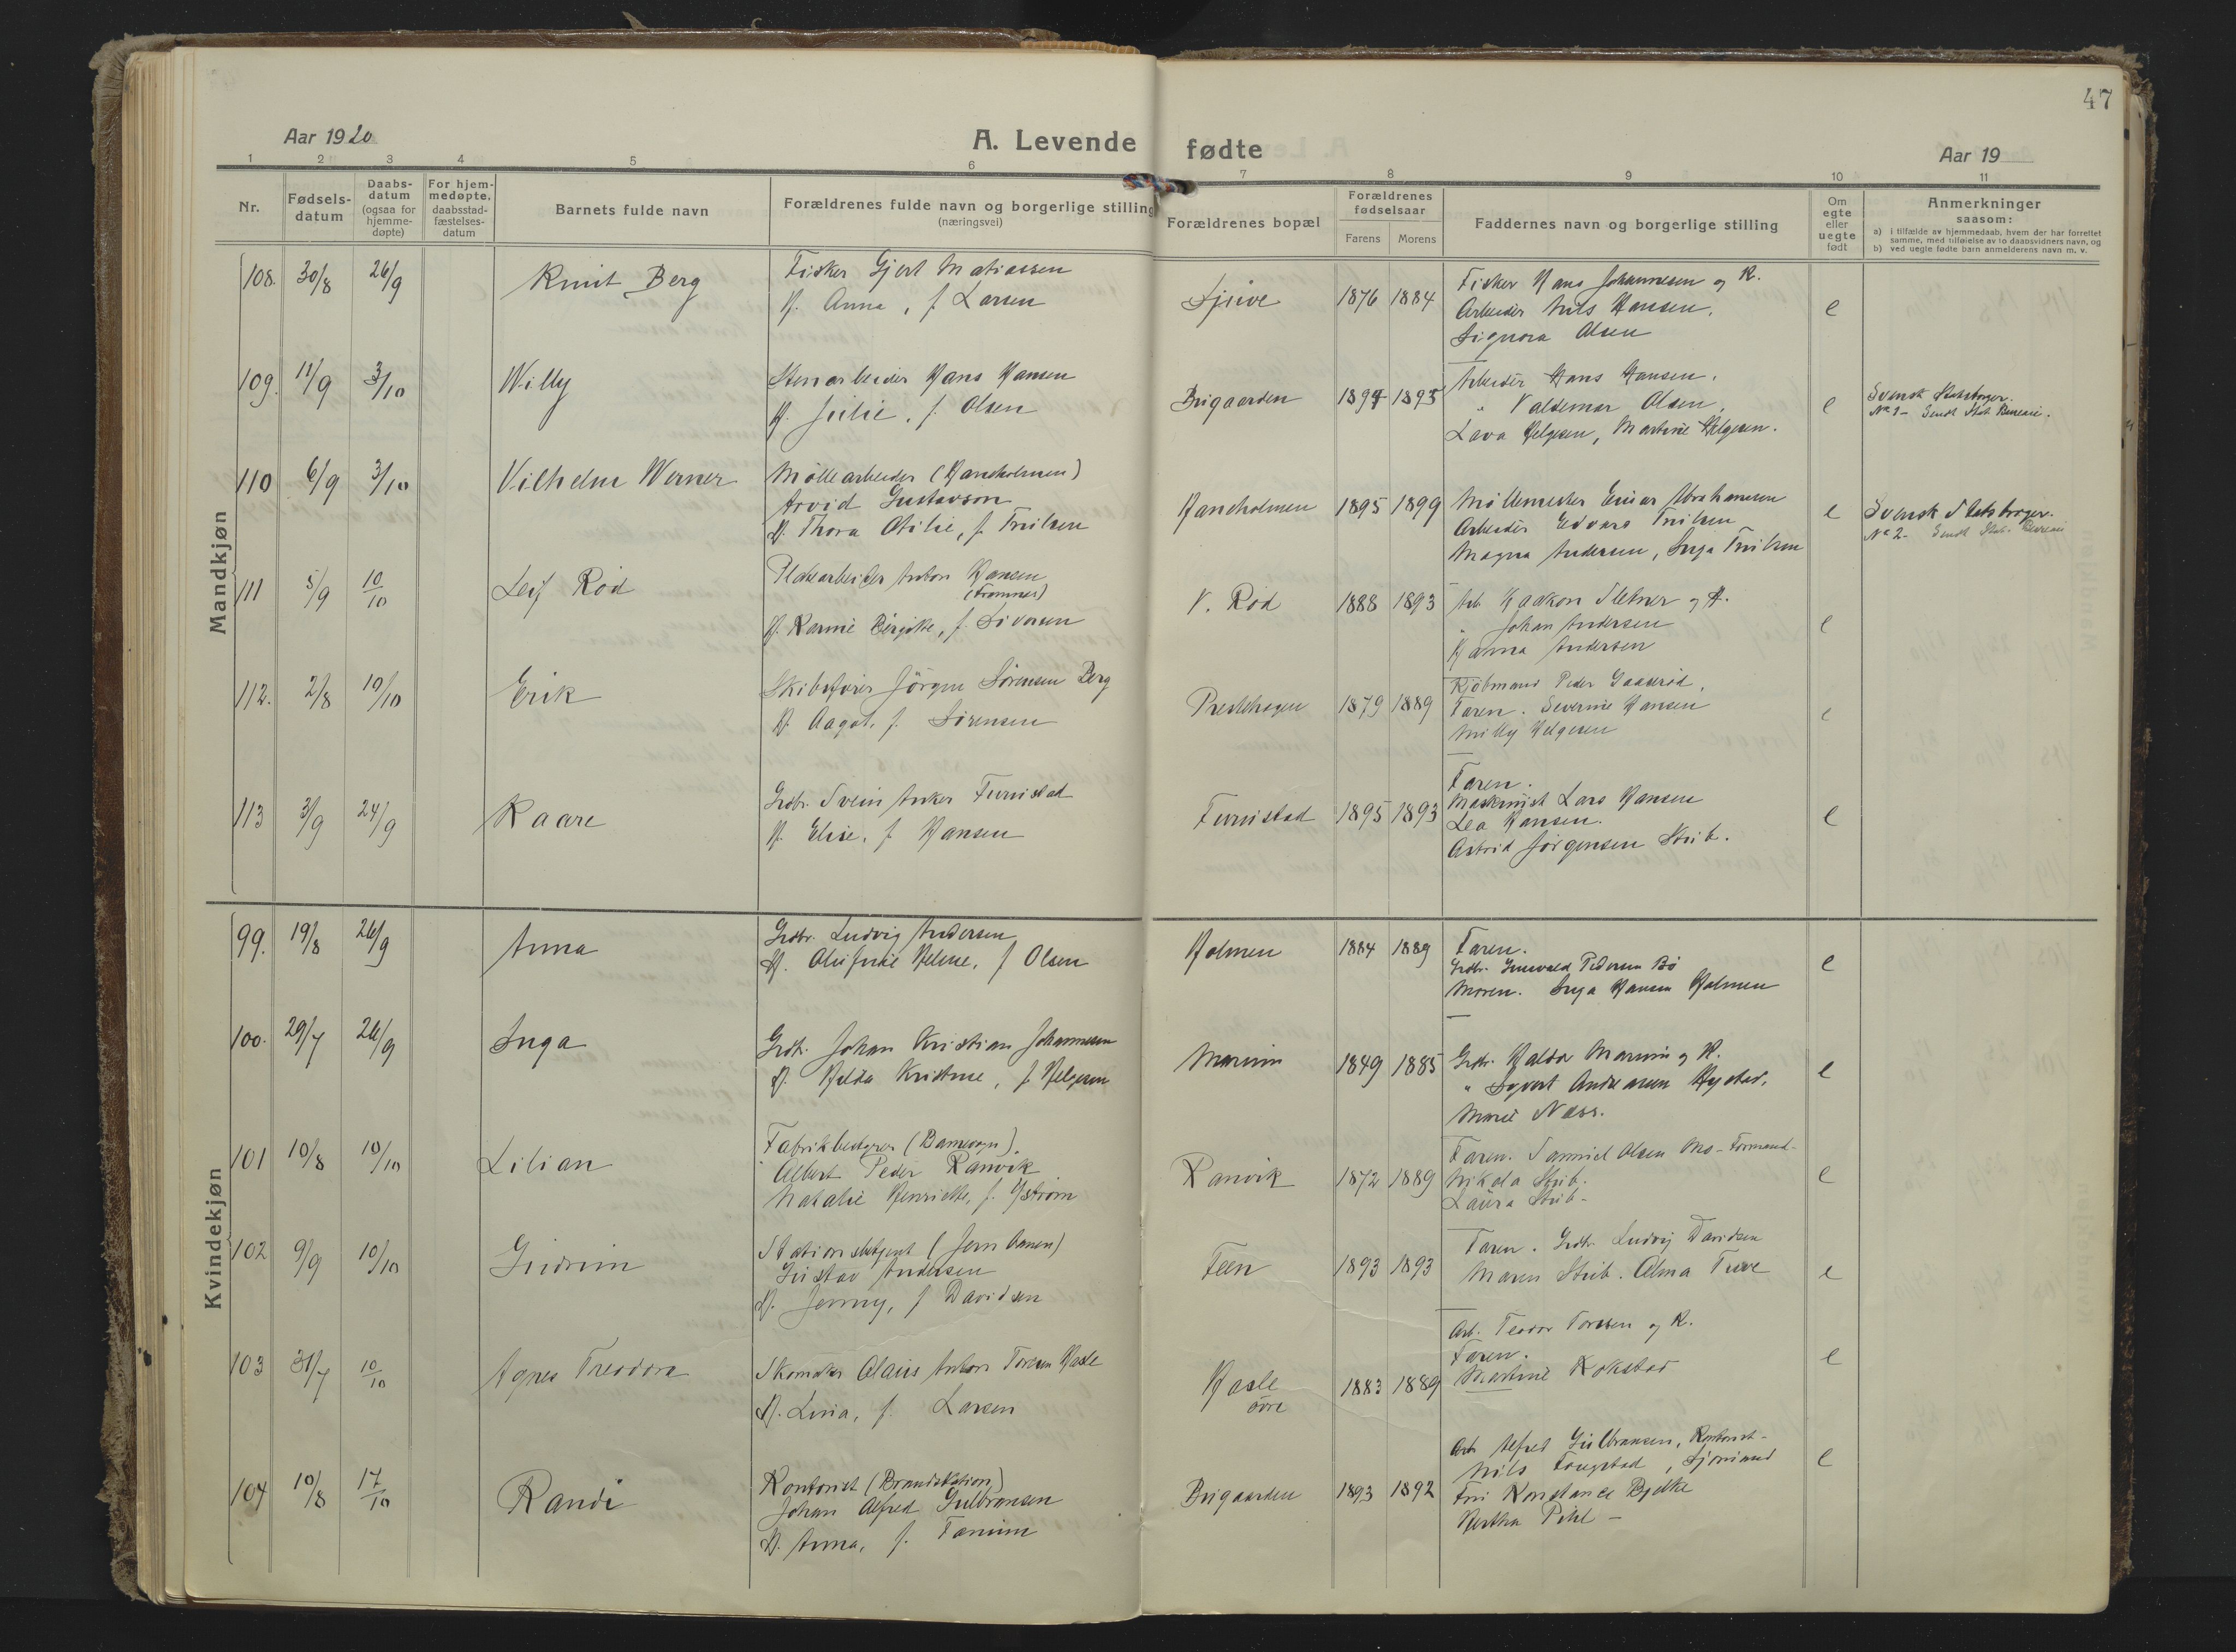 47
Aar 1920
A. Levende fødte
Aar 19
1 2 3 4 5 6 7 8 9 10 11
Nr.
Fødsels-
datum
Daabs-
datum
(ogsaa for
hjemme-
døpte)
For hjem-
medøpte,
daabsstad-
fæstelses-
datum
Barnets fulde navn
Forældrenes fulde navn og borgerlige stilling
(næringsvei)
Forældrenes bopæl
Forældrenes
fødselsaar
Farens Morens
Faddernes navn og borgerlige stilling
Om
egte
eller
uegte
født
Anmerkninger
saasom:
a) i tilfælde av hjemmedaab, hvem der har forrettet
samme, med tilføielse av to daabsvidners navn, og
b) ved uegte fødte barn anmelderens navn m. v.
Mandkjøn
108. 30/8 26/9 Knut Berg
Fisker Gjert Matiassen
H. Anna, f. Larsen
1876 1884
Fisker Hans Johannesen og K.
Arbeider Nils Hansen,
Signora Olsen
e
109. 11/9 3/10 Willy
Stenarbeider Hans Hansen
H. Julie, f. Olsen
Brigaarden 1894 1895
Arbeider Hans Hansen,
" Valdemar Olsen,
Lava Helgesen, Martine Helgesen.
e
Svensk Statsborger.
No 1 - Sendt Stat. Bureau.
110 6/9 3/10 Vilhelm Werner
Møllearbeider (Hancholmen)
Arvid Gustavson
H. Thora Otilie, f. Truilsen
Hancholmen 1895 1899
Møllemester Einar Abrahamsen
Arbeider Edvard Truilsen
Magna Andersen, Inga Truilsen
e
Svensk Statsborger.
No 2 - Sendt Stat. Bureau
111 5/9 10/10 Leif Rød
Platearbeider Anton Hansen
H. Karine Birgitte, f. Siversen
V. Rød 1888 1893
Arb. Haakon Sletner og H.
" Johan Andersen
Hanna Andersen
e
112. 2/8 10/10 Erik
Skibsfører Jørgen Sørensen Berg
H. Aagot, f. Sørensen
Prestehagen 1879 1889
Kjøbmand Peder Gaaserød,
Faren. Severine Hansen
Milly Helgesen
e
113 3/9 24/9 Kaare
Grdbr. Svein Anker Furustad
H. Elise, f. Hansen
Furustad 1895 1893
Faren.
Maskinist Lars Hansen
Lea Hansen.
Astrid Jørgensen Strib.
e
Kvindekjøn
99. 19/8 26/9 Anna
Grdbr. Ludvig Andersen
H. Olufine Helene, f. Olsen
Holmen 1884 1889
Faren.
Grdbr. Grunvald Pedersen Bø
Moren. Inga Hansen Holmen
e
100. 29/7 26/9 Inga
Grdb. Johan Kristian Johannesen
H. Hilda Kristine, f. Helgesen
1849 1885
Grdbr. Haldor og K.
" Sigvart Andreasen Hystad,
Marie Næss.
e
101 10/8 10/10 Lilian
Fabrikbestyrer (Barnevogn).
Albert Peder Ranvik
Natalie Henriette, f. Ystrøm
Ranvik 1872 1889
Faren. Samuel Olsen Mo - Formand -
Nikola Strib.
Laura Strib -
e
102 9/9 10/10 Gudrun
Stationsbetjent (Jernbanen)
Gustav Andersen
H. Jenny, f. Davidsen
Feen 1893 1893
Faren. Grdb. Ludvig Davidsen
Maren Strib. Alma
e
103 31/7 10/10 Agnes Treodora
Skomaker Olaus Anton Torsen Hasle
H. Lina, f. Larsen
Hasle
øvre
1883 1889
Arb. Teodor Torssen og K.
Faren.
Martine Kokstad
e
104 10/8 17/10 Randi
Kontorist (Brandstation)
Johan Alfred Gulbransen
H. Anna, f. Tanum
Brigaarden 1893 1892
Arb. Alfred Gulbransen, Kontorist -
Nils , Sjømand
Fru Konstance Bjelke
Hertha Pihl -
e